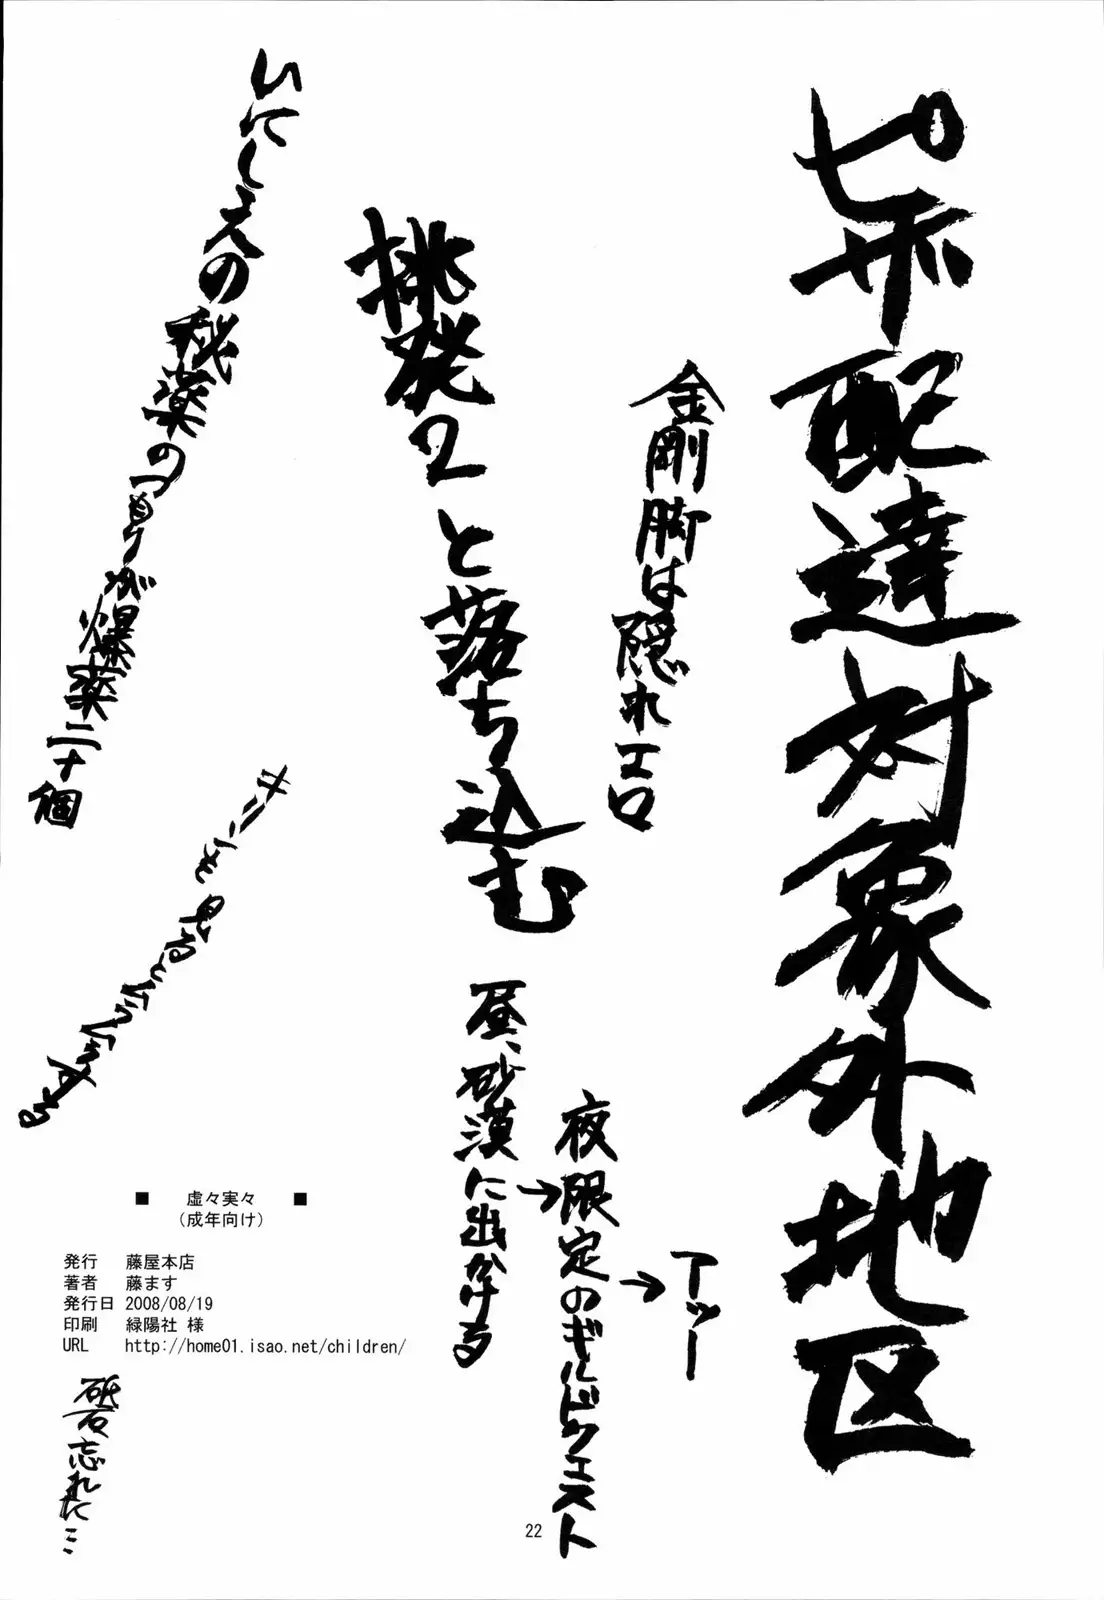 ピザ配達対象外地区
金剛脚は隠れエロ
挑発2と落ち込む
昼、砂漠に出かける
→
夜限定のギルドクエスト
→
アッー
いにしえの秘薬のつもりが爆薬二十個
■ 虚々実々 ■
(成年向け)
発行 藤屋本店
著者 藤ます
発行日 2008/08/19
印刷 緑陽社 様
URL http://home01.isao.net/children/
砥石忘れた…
22